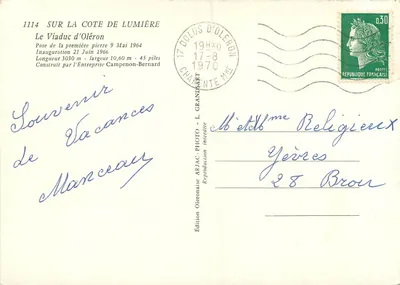 1114 SUR LA COTE DE LUMIÈRE
Le Viaduc d'Oléron
Pose de la première pierre 9 Mai 1964
Inauguration 21 Juin 1966
Longueur 3030 m - largeur 10,60 m - 45 piles
Construit par l'Entreprise Campenon-Bernard
Souvenir
de Vacances
Manceau
Edition Olonnaise ARJAC-PHOTO - L. GRANDSART
Reproduction interdite
17 DOLUS D'OLERON
17-8
1970
CHARENTE-Mme
0,30
POSTES
REPUBLIQUE FRANÇAISE
M et Mme Religieux
Yèvres
28 Brou